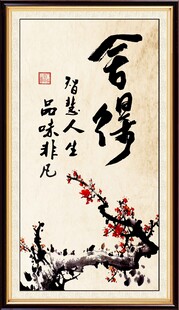 舍得
智慧人生
品味非凡